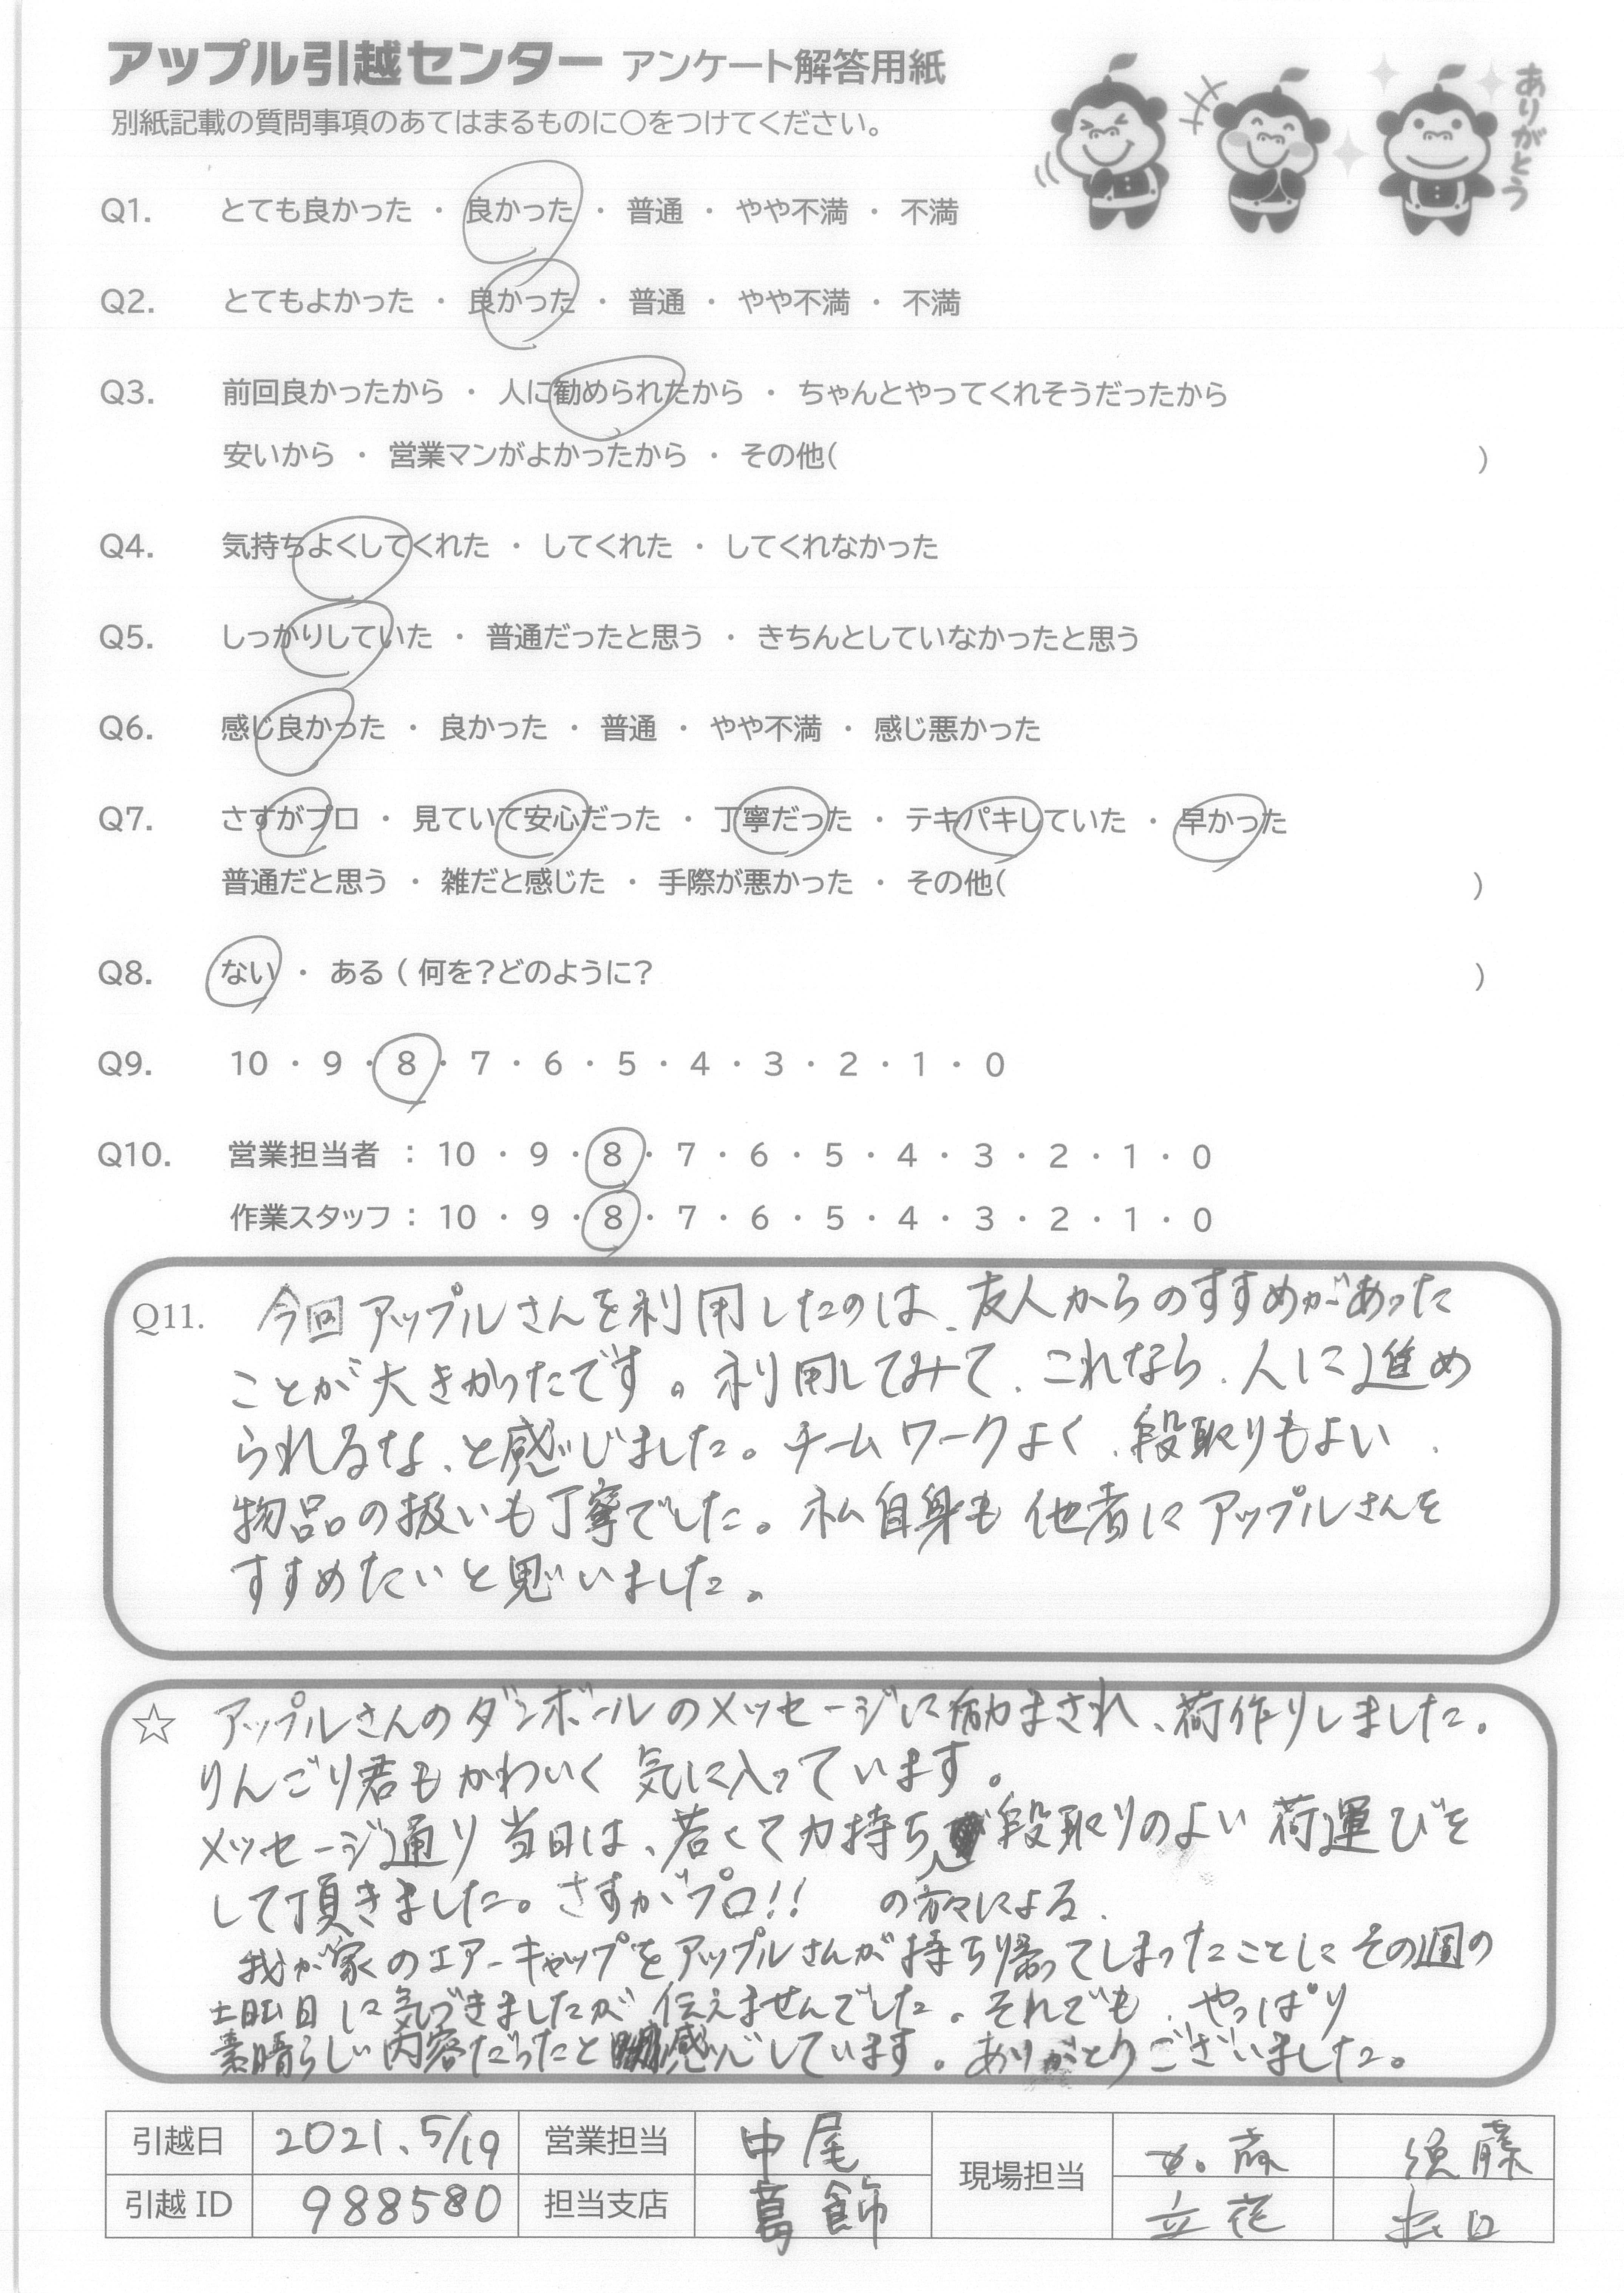 アップル引越センター アンケート解答用紙
ありがとう
別紙記載の質問事項のあてはまるものに○をつけてください。
Q1. とても良かった ・ 良かった ・ 普通 ・ やや不満 ・ 不満
Q2. とてもよかった ・ 良かった ・ 普通 ・ やや不満 ・ 不満
Q3. 前回良かったから ・ 人に勧められたから ・ ちゃんとやってくれそうだったから
安いから ・ 営業マンがよかったから ・ その他( )
Q4. 気持ちよくしてくれた ・ してくれた ・ してくれなかった
Q5. しっかりしていた ・ 普通だったと思う ・ きちんとしていなかったと思う
Q6. 感じ良かった ・ 良かった ・ 普通 ・ やや不満 ・ 感じ悪かった
Q7. さすがプロ ・ 見ていて安心だった ・ 丁寧だった ・ テキパキしていた ・ 早かった
普通だと思う ・ 雑だと感じた ・ 手際が悪かった ・ その他( )
Q8. ない ・ ある ( 何を?どのように? )
Q9. 10 ・ 9 ・ 8 ・ 7 ・ 6 ・ 5 ・ 4 ・ 3 ・ 2 ・ 1 ・ 0
Q10. 営業担当者 : 10 ・ 9 ・ 8 ・ 7 ・ 6 ・ 5 ・ 4 ・ 3 ・ 2 ・ 1 ・ 0
作業スタッフ : 10 ・ 9 ・ 8 ・ 7 ・ 6 ・ 5 ・ 4 ・ 3 ・ 2 ・ 1 ・ 0
Q11. 今回アップルさんを利用したのは、友人からのすすめがあった
ことが大きかったです。利用してみて、これなら、人に進め
られるな、と感じました。チームワークよく、段取りもよい、
物品の扱いも丁寧でした。私自身も他者にアップルさんを
すすめたいと思いました。
☆ アップルさんのダンボールのメッセージに励まされ、荷作りしました。
りんごり君もかわいく気に入っています。
メッセージ通り当日は、若くて力持ち 段取りのよい荷運びを
して頂きました。さすがプロ!! の方々による
我が家のエアーキャップをアップルさんが持ち帰ってしまったことにその週の
土曜日に気づきましたが伝えませんでした。それでも、やっぱり
素晴らしい内容だったと感心しています。ありがとうございました。
引越日 2021.5/19 営業担当 中尾 現場担当 加藤 須藤
引越ID 988580 担当支店 葛飾 立花